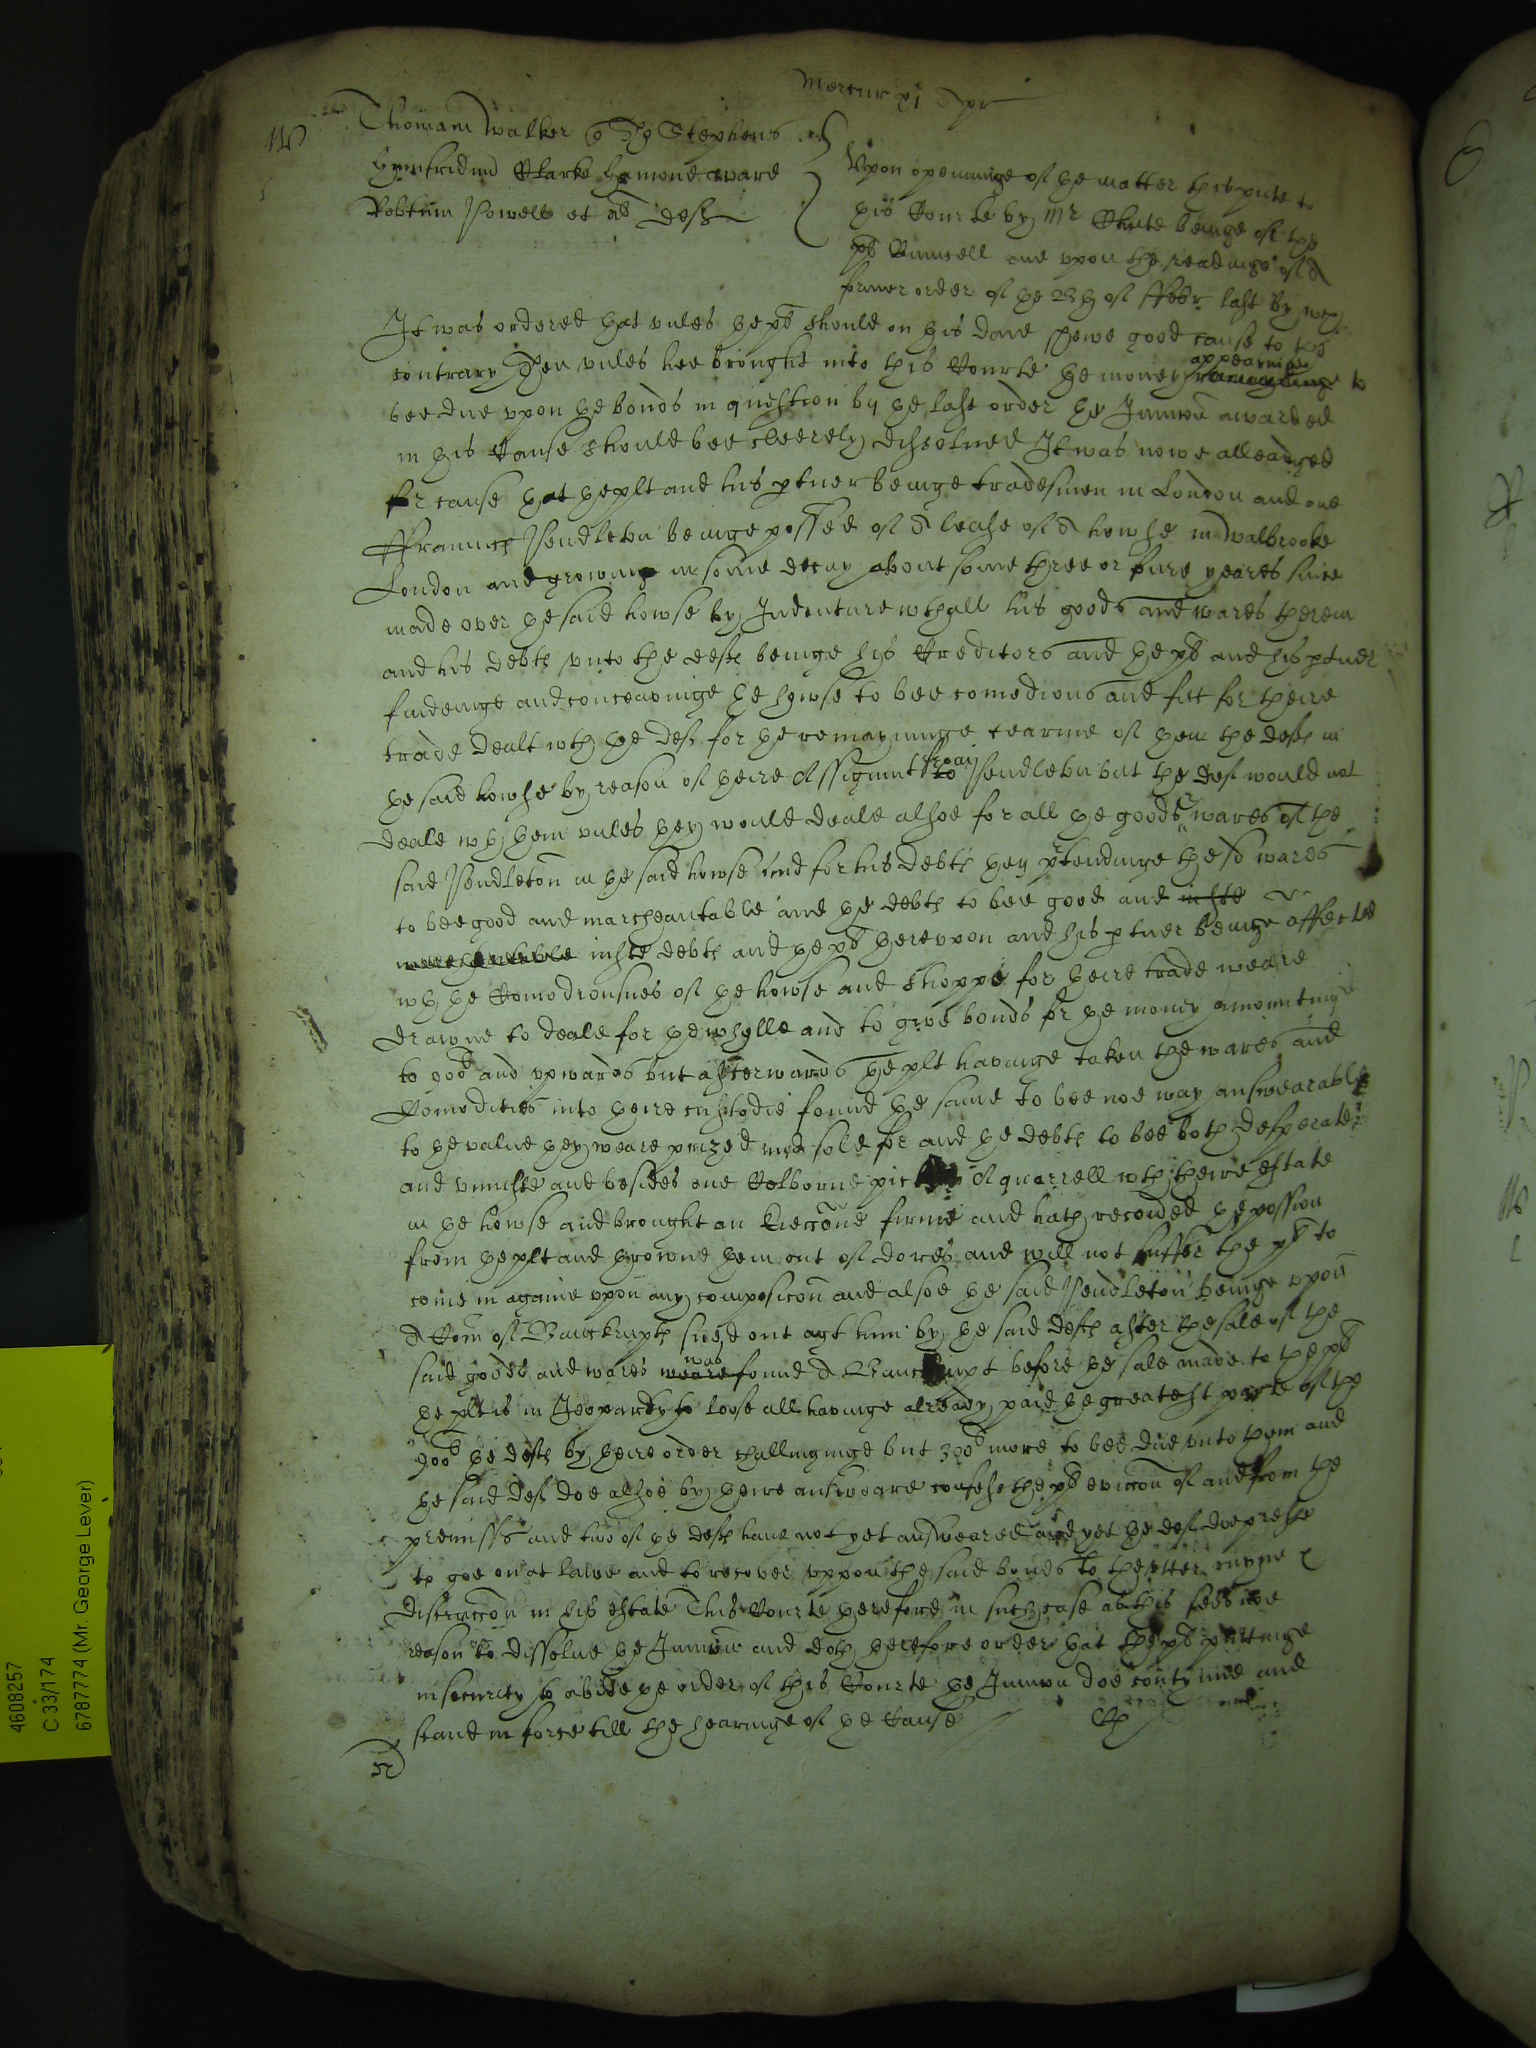 Mercur xi Apr
W
Thomam Walker q Tho Stephens
Humfridum Clarke Hamond Ward
Robtum Powell et al deftes
Upon openinge of the matter this pnte to
this Courte by Mr Chute beinge of the
plts Councell and upon the readinge of a
former order of the 23th of Febr last by wch
It was ordered that unles the plt should on this daie shewe good cause to the
contrary Then unles hee brought into this Courte the money appearinge remayninge to
bee due upon the bonds in question by the last order the Iniunccon awarded
in this Cause should bee cleerely dissolved It was nowe alleadged
for cause that the plt and his ptner beinge tradesmen in London and one
Frauncis Pendleton beinge possed of a lease of a howse in Walbrooke
London and growinge in some decay about some three or fure yeares since
made over the said howse by Indenture wth all his goods and wares therein
and his debts unto the deftes beinge his Creditors and the plt and his ptner
findeinge and conceavinge the howse to bee comodious and fitt for theire
trade dealt wth the deftes for the remayninge tearme of them the deftes in
the said howse by reason of theire Assignmt from to Pendleton but the deftes would not
deale wth them unles they would deale alsoe for all the goods & wares of the
said Pendleton in the said howse and for his debts they ptendinge the sd wares
to bee good and marcheantable and the debts to bee good and iuste
marcheantable iuste debts and the plt thereupon and his ptner beinge affected
wth the Comodiousnes of the howse and shoppe for theire trade weare
drawne to deale for the whole and to give bonds for the money amountinge
to 900l and upwards but afterwards the plt havinge taken the wares and
Comodities into theire custodie found the same to bee noe way answearable
to the value they weare prized and sold for and the debts to bee both desperate
and uniuste and besides one Colborne a quarrell wth theire estate
in the howse and brought an Eieccone firme and hath recovered the possion
from the plt and throwne them out of dores and will not suffer the plt to
come in againe upon any composicon and alsoe the said Pendleton beinge upon
a Com of Banckrupts sued out agt him by the said deftes after the sale of the
said goods and wares weare was found a Banckrupt before the sale made to the plt
the plt is in Jeopardy to loose all havinge already paid the greatest parte of the
900l the deftes by theire order challinginge but 300l more to bee due unto them and
the said deftes doe alsoe by theire answeare confesse the plts eviccon of and from the
premisses and two of the deftes have not yet answeared and yet the deftes doe presse
to goe on at lawe and to recover uppon the said bonds to the utter ruyne &
distruccon in his estate This Courte therefore in such case as this sees noe
reason to dissolve the Iniunccon and doth therefore order that the plt puttinge
in security to abide the order of this Courte the Iniunccon doe contynue and
stand in force till the hearinge of the Cause
4608257
C 33/174
6787774 (Mr. George Lever)